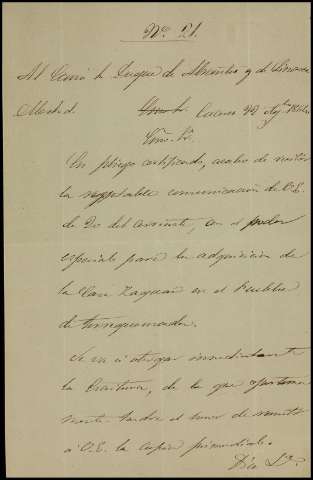 Nº 21.
Al Señor Duque de Abrantes y de Linares
Madrid. Cáceres 22 Agto
Exmo. Sr.
En pliego certificado, acabo de recibir
la respetable comunicación de V.E.
de 20 del corriente, con el poder
especial para la adquisición de
la Casa Zaguan en el Pueblo
de Torrequemada.
Se va a otorgar inmediatamente
la Escritura, de la que oportuna-
mente tendré el honor de remitir
a V.E. la copia primordial.
Dios